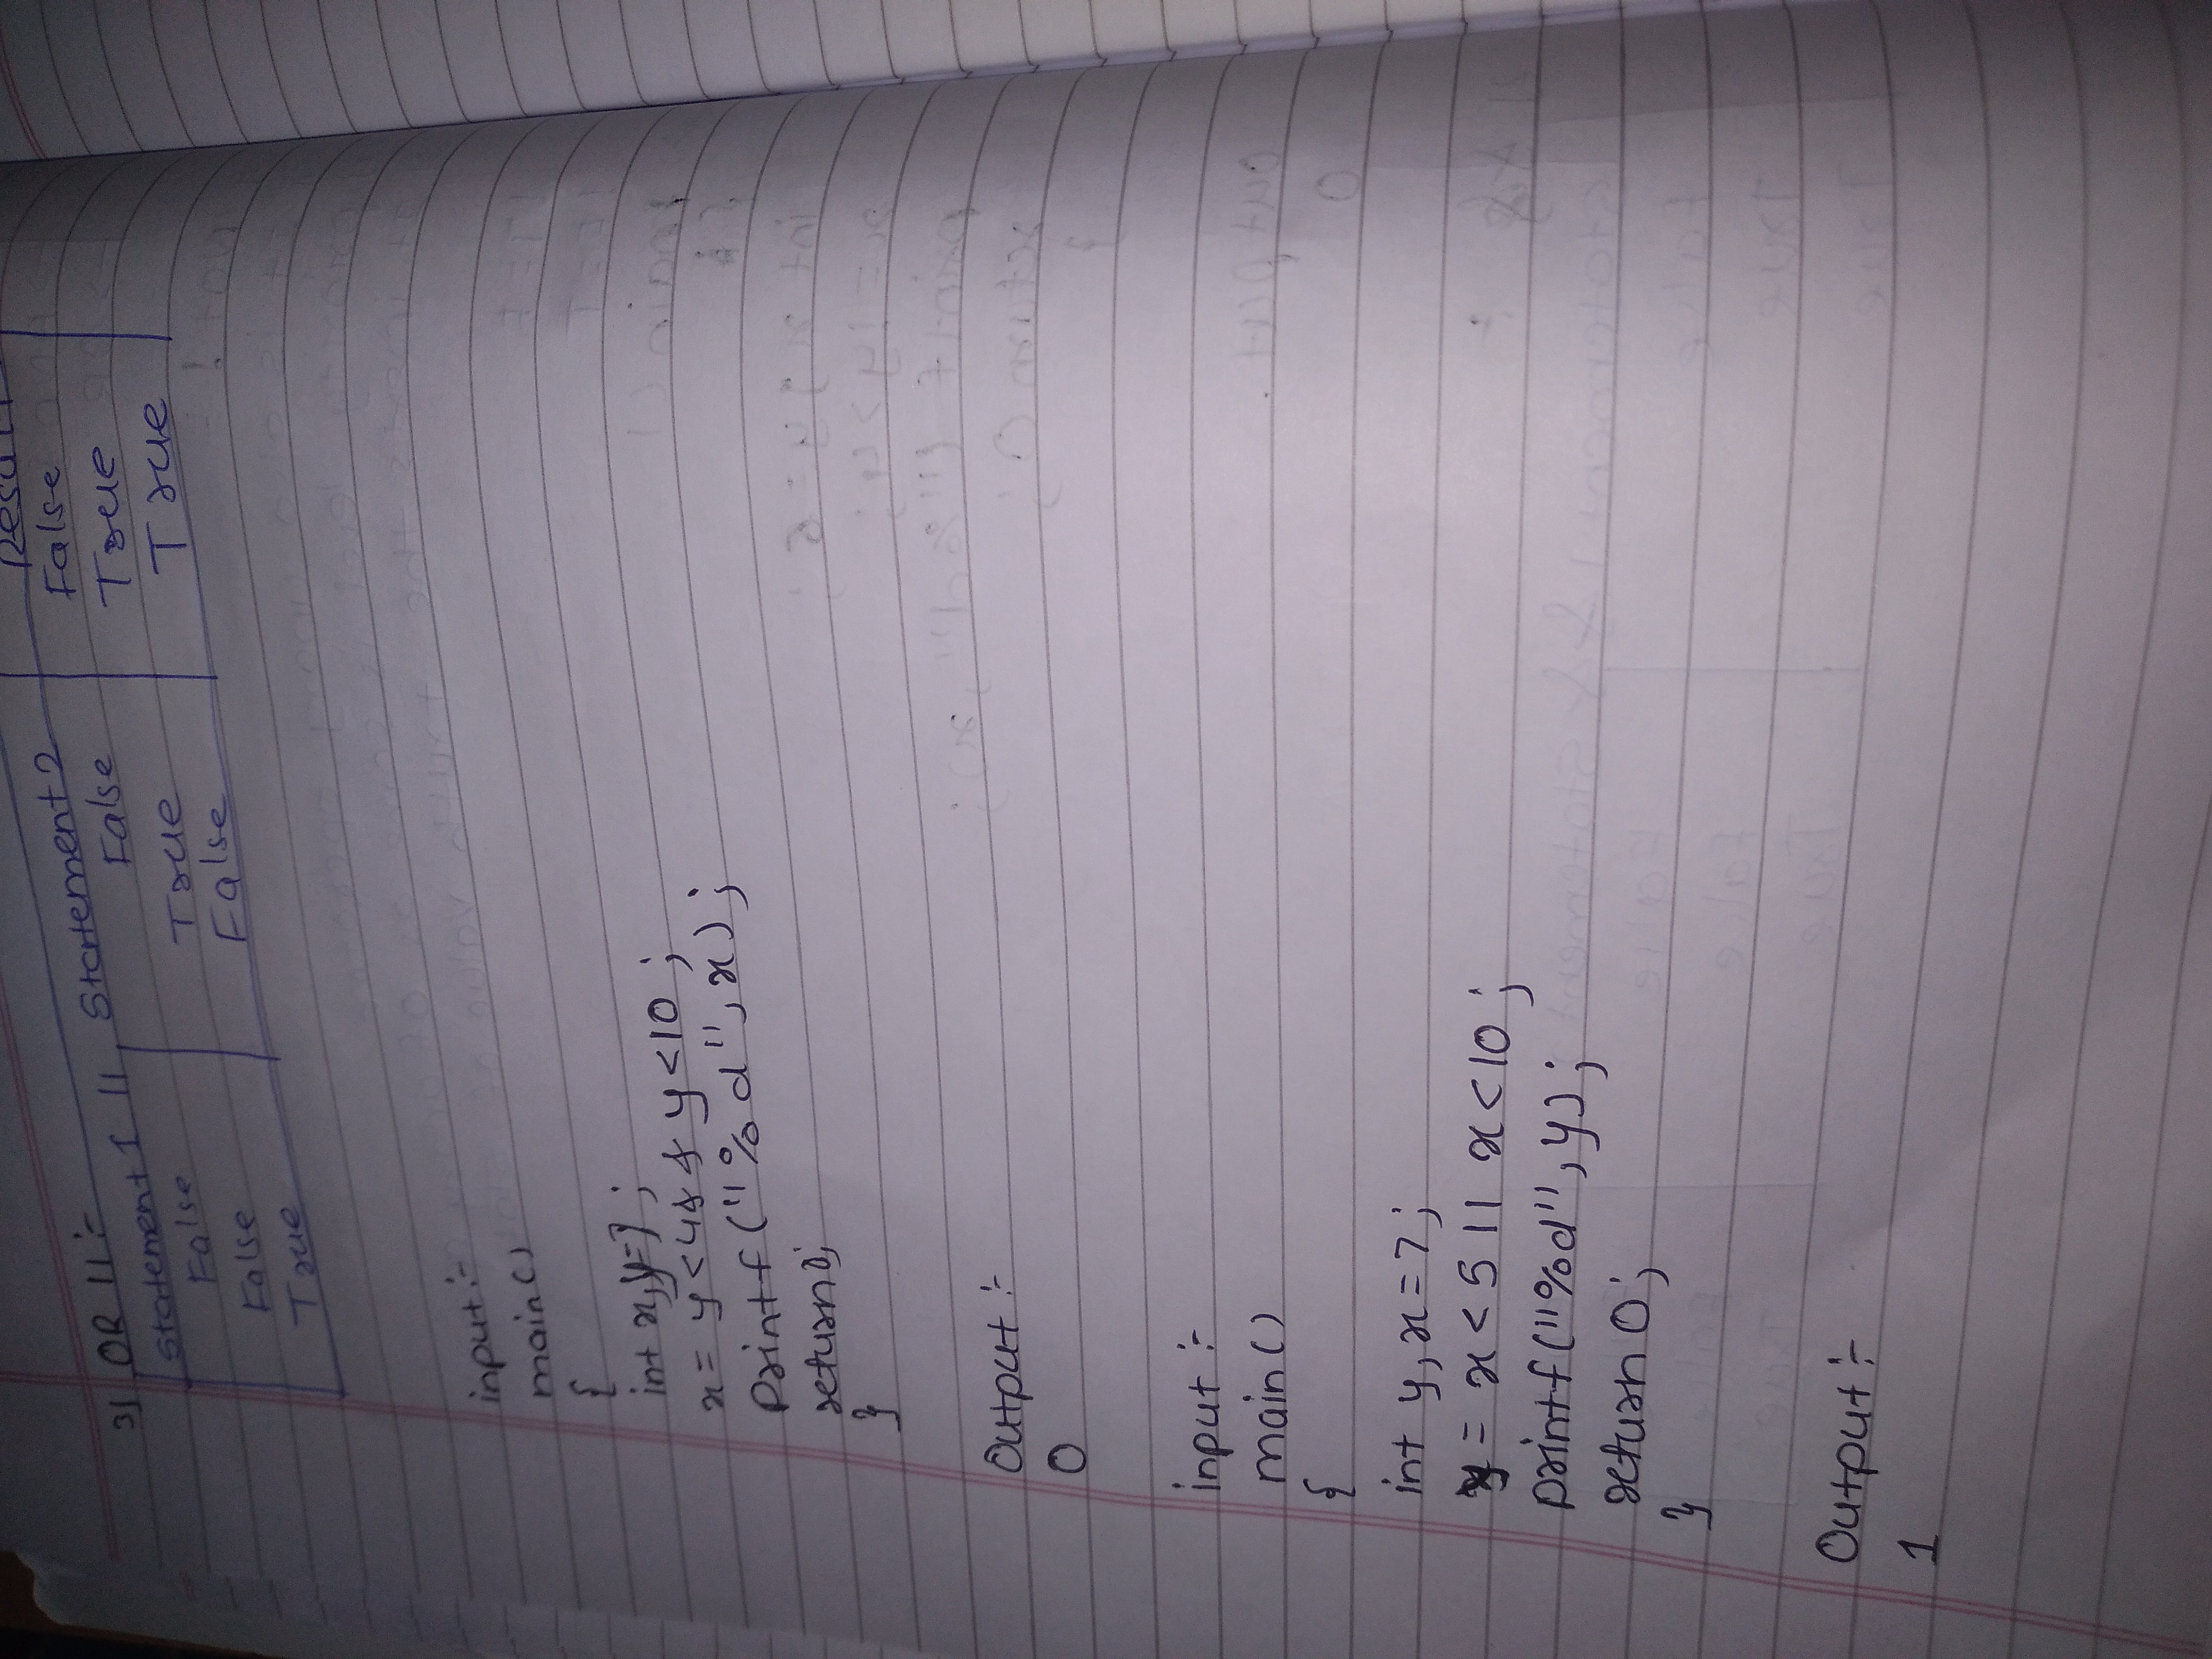 3) OR || :-
Statement 1 || Statement 2 Result
False False False
False True True
True False True
input :-
main()
{
int x,y=7;
x = y<4&& y<10;
Printf("%d",x);
return 0;
}
Output :-
0
input :-
main()
{
int y,x=7;
y = x<5 || x<10;
printf("%d",y);
return 0;
}
Output :-
1